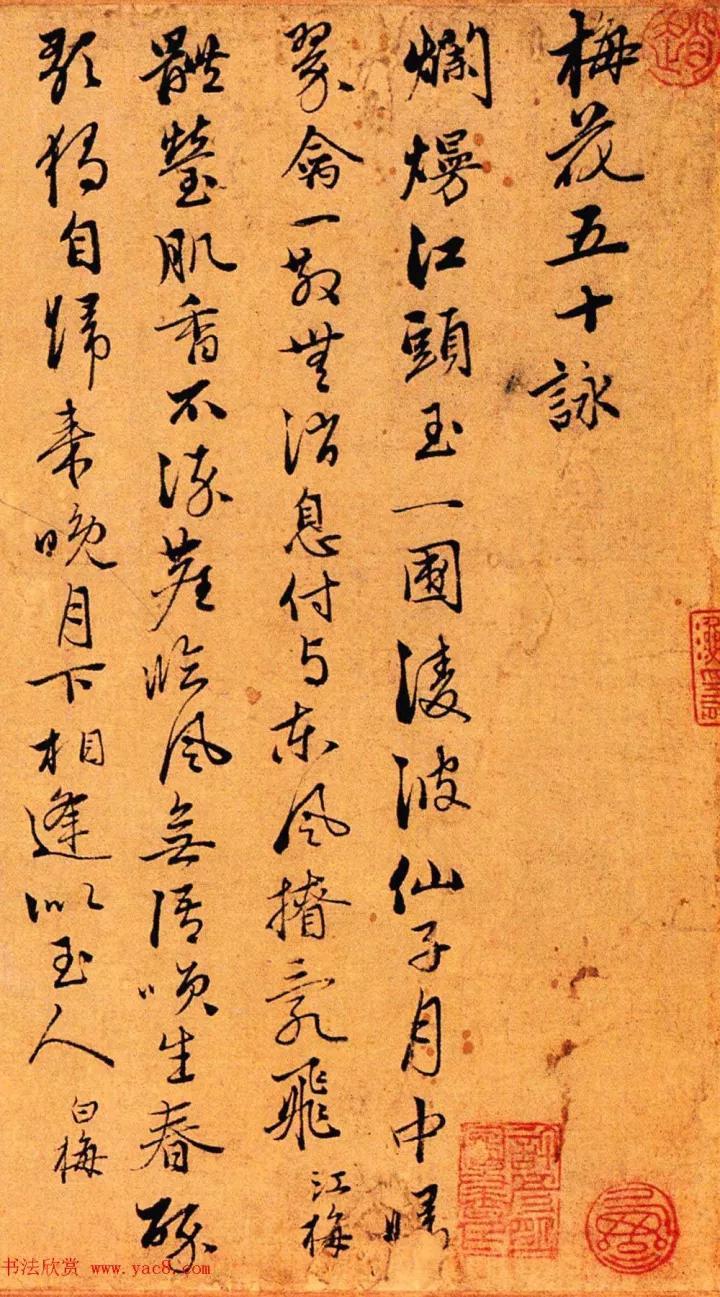 梅花五十詠
爛熳江頭玉一圍凌波仙子月中歸
翠禽一散無消息付与東風撩亂飛 江梅
體瑩肌香不染塵臨風無語喚生春醉
歌獨自歸來晚月下相逢似玉人 白梅
书法欣赏 www.yac8.com